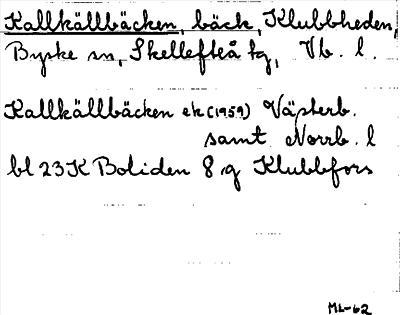 Kallkällbäcken, bäck, Klubbheden,
Byske sn, Skellefteå tg, Vb. l.
Kallkällbäcken ek (1959) Västerb.
samt Norrb. l
bl 23K Boliden 8 g Klubbfors
ML-62